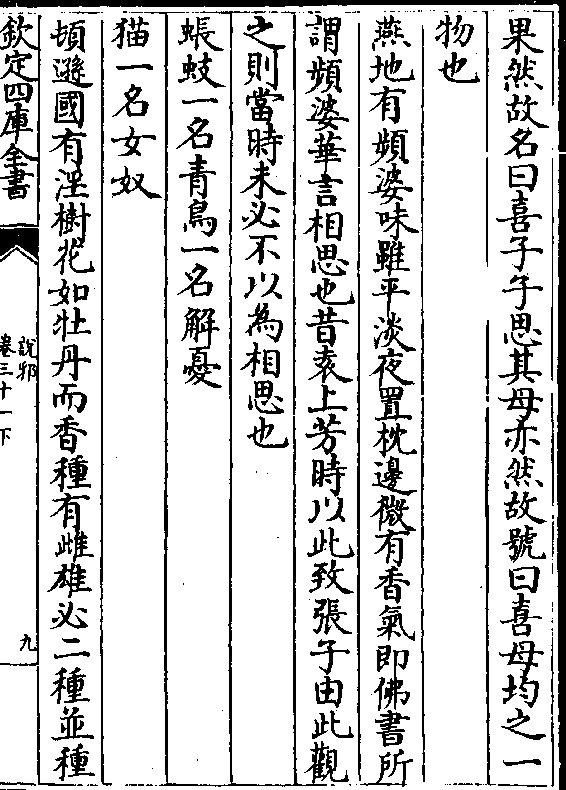 果然故名曰喜子子思其母亦然故號曰喜母均之一
物也
燕地有頻婆味雖平淡夜置枕邊微有香氣即佛書所
謂頻婆華言相思也昔袁上芳時以此致張子由此觀
之則當時未必不以為相思也
蜄蚑一名青鳥一名解憂
猫一名女奴
頓遜國有淫樹花如牡丹而香種有雌雄必二種並種
欽定四庫全書
說郛
卷三十一下
九